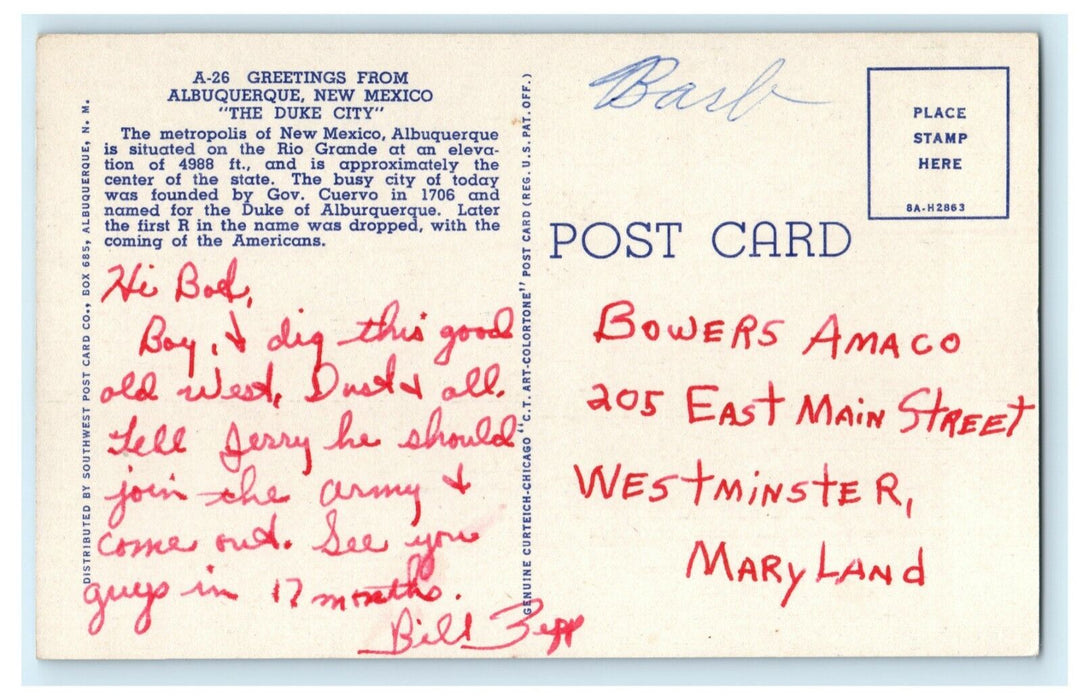 A-26 GREETINGS FROM
ALBUQUERQUE, NEW MEXICO
"THE DUKE CITY"
The metropolis of New Mexico, Albuquerque
is situated on the Rio Grande at an eleva-
tion of 4988 ft., and is approximately the
center of the state. The busy city of today
was founded by Gov. Cuervo in 1706 and
named for the Duke of Alburquerque. Later
the first R in the name was dropped, with the
coming of the Americans.
Hi Bob,
Boy, I dig this good
old West, Dust & all.
Tell Jerry he should
join the army &
come out. See you
guys in 17 months.
Bill Zepp
DISTRIBUTED BY SOUTHWEST POST CARD CO., BOX 685, ALBUQUERQUE, N. M.
GENUINE CURTEICH-CHICAGO "C.T. ART-COLORTONE" POST CARD (REG. U.S. PAT. OFF.)
Barb
PLACE
STAMP
HERE
8A-H2863
POST CARD
BOWERS AMACO
205 EAST MAIN STREET
WESTMINSTER,
MARYLAND